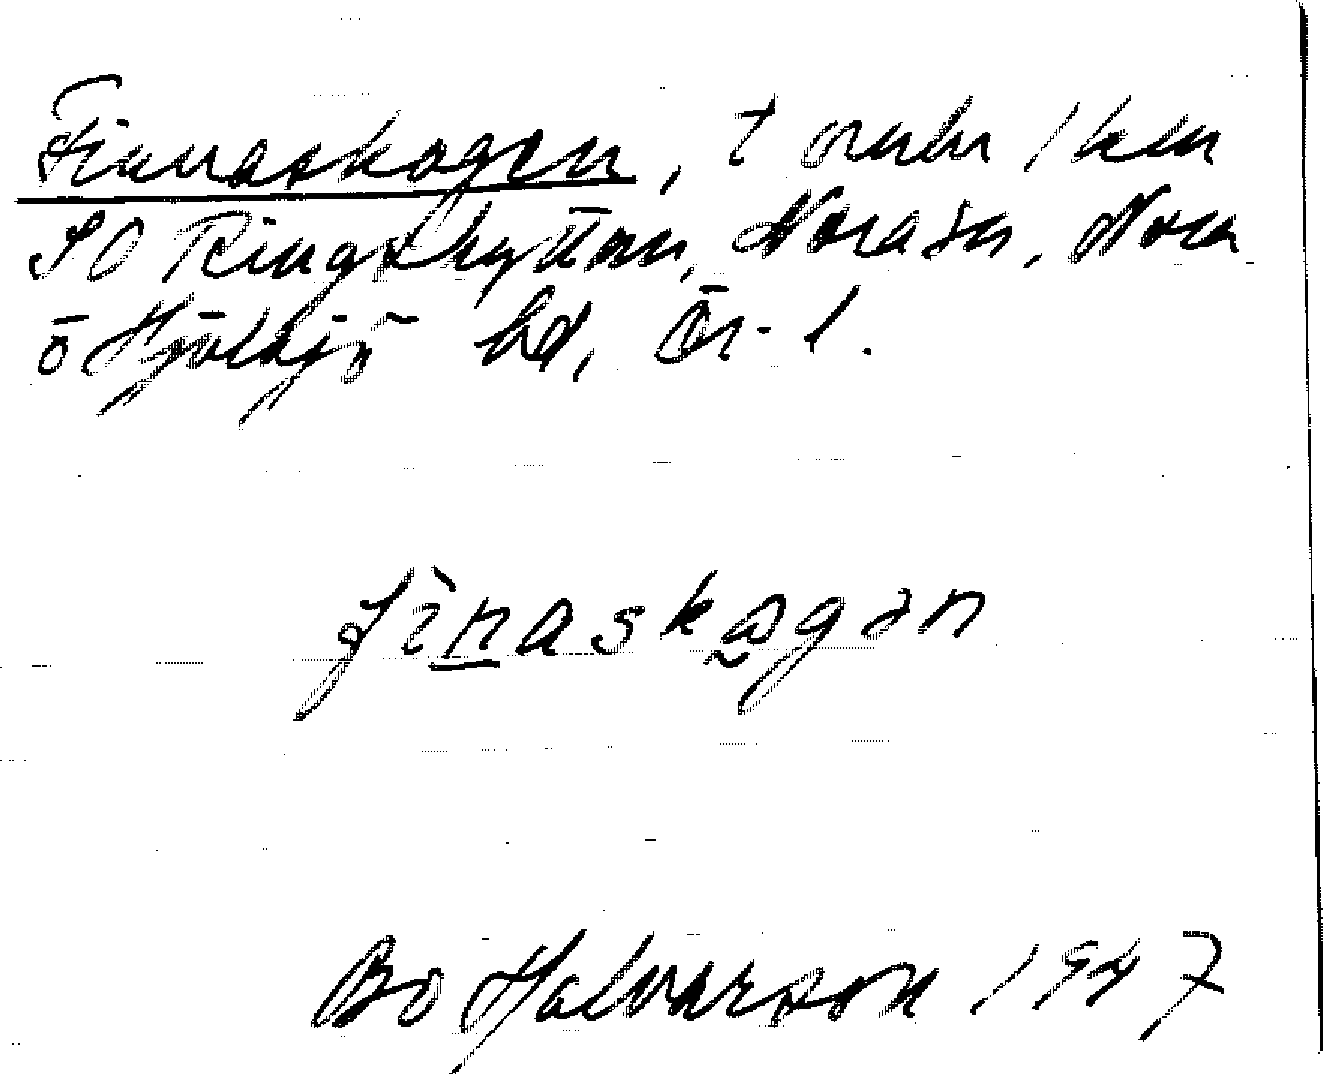 Finnaskogen, t område 1 km
SO Ringshyttan, Nora sn, Nora
o Hjulsjö hd, Ör. l.
fìnaskogən
Bo Halvarson 1947